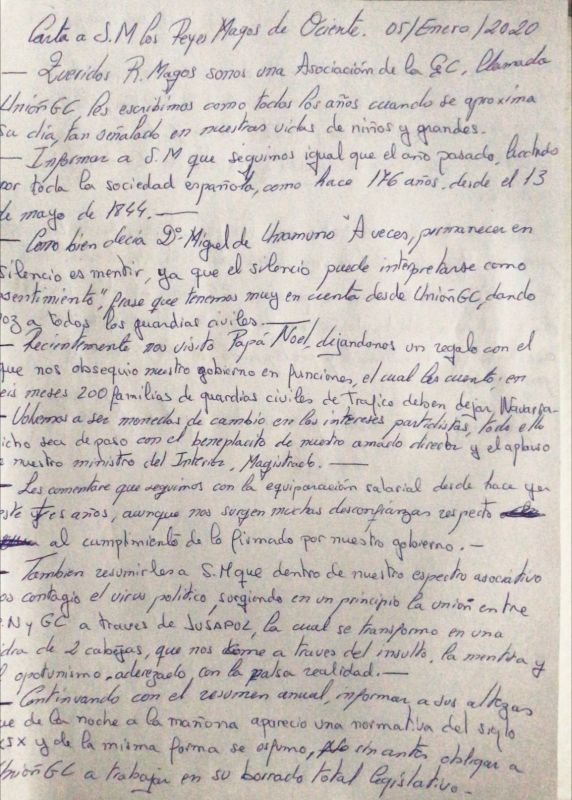 Carta a S.M los Reyes Magos de Oriente. 05/Enero/2020
— Queridos R. Magos somos una Asociación de la GC, llamada
UniónGC les escribimos como todos los años cuando se aproxima
su día, tan señalado en nuestras vidas de niños y grandes.
— Informar a S.M que seguimos igual que el año pasado, luchando
por toda la sociedad española, como hace 176 años, desde el 13
de mayo de 1844. —
— Como bien decía Dº Miguel de Unamuno "A veces, permanecer en
silencio es mentir, ya que el silencio puede interpretarse como
asentimiento", frase que tenemos muy en cuenta desde UniónGC, dando
voz a todos los guardias civiles. —
— Recientemente nos visito Papá Noel, dijandonos un regalo con el
que nos obsequio nuestro gobierno en funciones, el cual les cuento, en
seis meses 200 familias de guardias civiles de Trafico deben dejar, Navarra-
— Volvemos a ser monedas de cambio en los intereses partidistas, todo ello
dicho sea de paso con el beneplacito de nuestro amado director y el aplauso
de nuestro ministro del Interior, Magistrado. —
— Les comentare que seguimos con la equiparación salarial desde hace ya
este tres años, aunque nos surgen muchas desconfianzas respecto
al cumplimiento de lo firmado por nuestro gobierno. —
— Tambien resumirles a S.M que dentro de nuestro espectro asociativo
nos contagió el virus politico, surgiendo en un principio la unión entre
P.N y GC a traves de JUSAPOL, la cual se transformo en una
hidra de 2 cabezas, que nos come a traves del insulto, la mentira y
el opotunismo, aderezado con la falsa realidad. —
— Continuando con el resumen anual, informar a sus altezas
que de la noche a la mañana apareció una normativa del siglo
XIX y de la misma forma se esfumo, no sin antes obligar a
UniónGC a trabajar en su borrado total legislativo. -